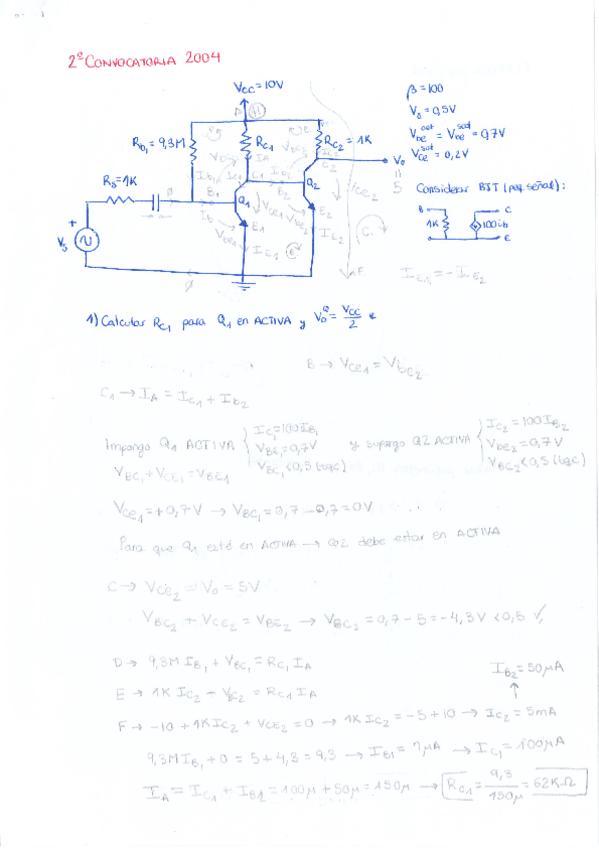 2ª CONVOCATORIA 2004
Vcc=10V
β=100
Vγ=0,5V
Vbe^act = Vbe^sat = 0,7V
Vce^sat = 0,2V
Rb1=9,3M
Rc1
Rc2=1K
Rs=1K
Q1
Q2
Vo
=
5
Considerar BJT (peq. señal):
B
1K
100ib
C
E
Vs
IE1=-IE2
1) Calcular Rc1 para Q1 en ACTIVA y Vo^Q = Vcc/2
B → Vce1 = Vbe2
C1 → IA = Ic1 + Ib2
Impongo Q1 ACTIVA { Ic1=100IB1
VBE1=0,7V
VBC1<0,5 (logc)
y supongo Q2 ACTIVA { Ic2=100IB2
Vbe2=0,7V
VBC2<0,5 (logc)
VBC1+VCE1=VBE1
Vce1=+0,7V → VBC1=0,7-0,7=0V
Para que Q1 esté en ACTIVA → Q2 debe estar en ACTIVA
C → Vce2 = Vo = 5V
VBC2 + VCE2 = VBE2 → VBC2 = 0,7-5=-4,3V <0,5 ✓
D → 9,3M IB1 + VBC1 = Rc1 IA
IB2=50μA
E → 1K IC2 - VBC2 = Rc1 IA
F → -10+1K IC2 + VCE2 = 0 → 1K IC2 = -5+10 → IC2 = 5mA
9,3M IB1 + 0 = 5+4,3 = 9,3 → IB1 = 1μA → IC1=100μA
IA = IC1 + IB2 = 100μ + 50μ = 150μ → Rc1 = 9,3/150μ = 62KΩ